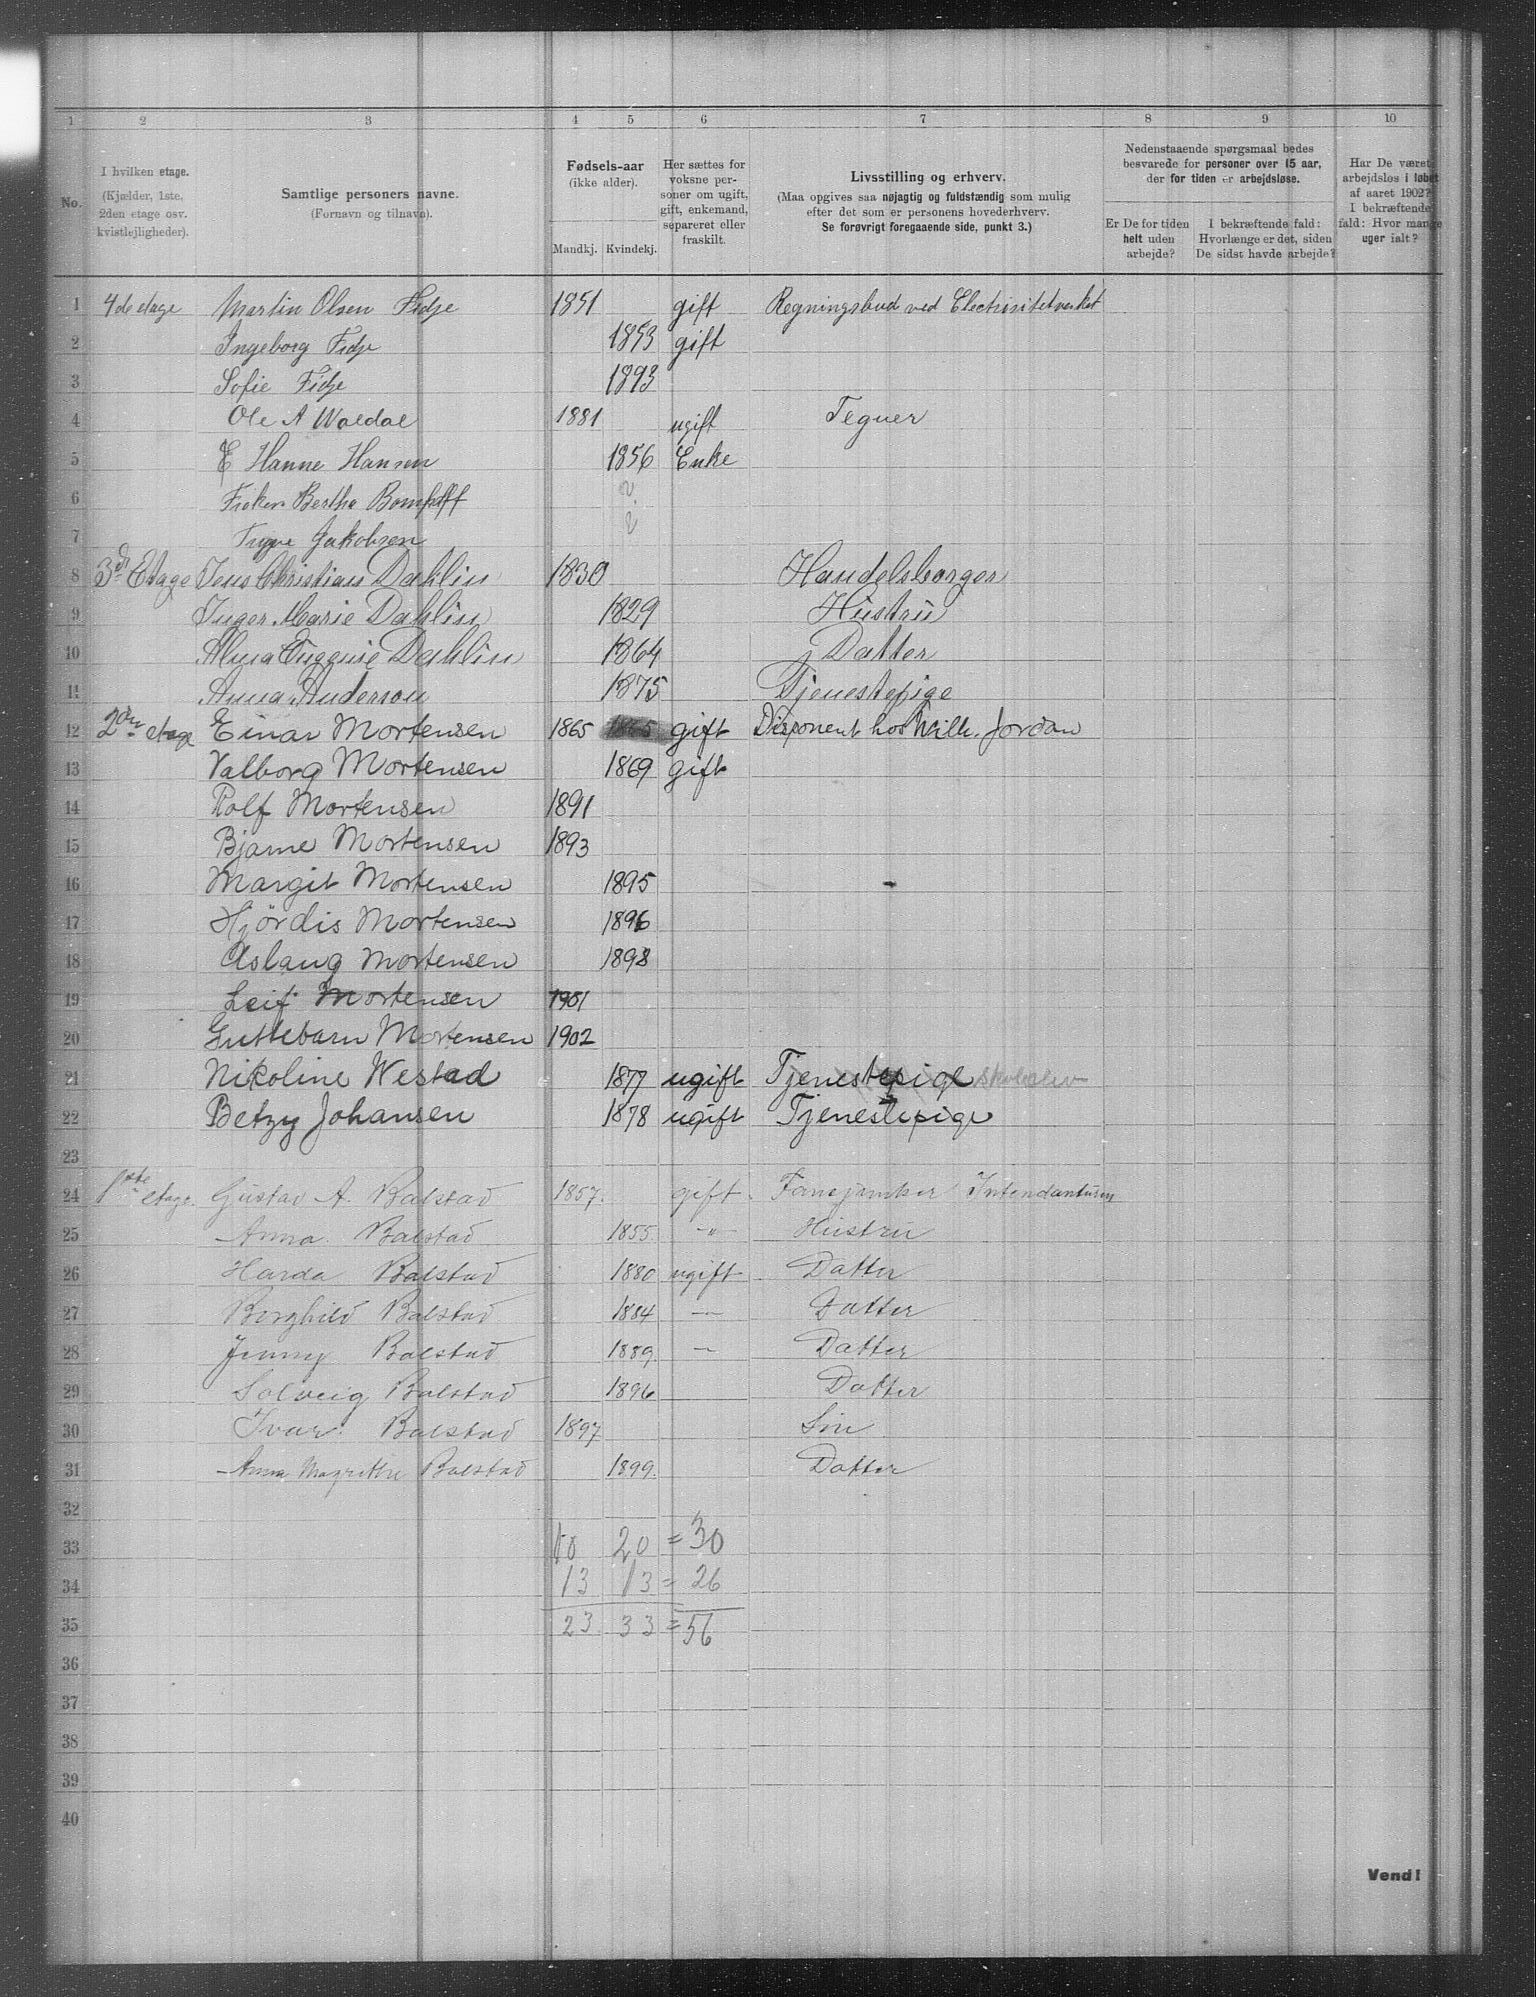 1 2 3 4 5 6 7 8 9 10
No.
I hvilken etage.
(Kjælder, 1ste,
2den etage osv.
kvistlejligheder).
Samtlige personers navne.
(Fornavn og tilnavn).
Fødsels-aar
(ikke alder).
Mandkj. Kvindekj.
Her sættes for
voksne per-
soner om ugift,
gift, enkemand,
separeret eller
fraskilt.
Livsstilling og erhverv.
(Maa opgives saa nøjagtig og fuldstændig som mulig
efter det som er personens hovederhverv.
Se forøvrigt foregaaende side, punkt 3.)
Nedenstaaende spørgsmaal bedes
besvarede for personer over 15 aar,
der for tiden er arbejdsløse.
Er De for tiden
helt uden
arbejde?
I bekræftende fald:
Hvorlænge er det, siden
De sidst havde arbejde?
Har De været
arbejdsløs i løbet
af aaret 1902?
I bekræftende
fald: Hvor mange
uger ialt?
1 4de etage Martin Olsen Fidje 1851 gift Regningsbud ved Electrisitetverket
2 Ingeborg Fidje 1853 gift
3 Sofie Fidje 1893
4 Ole A Waldal 1881 ugift Tegner
5 E Hanne Hansen 1856 Enke
6 Bertha ?
7 Jakobsen ?
8 3die Etage Jens Christian Dahlin 1830 Handelsborger
9 Inger Marie Dahlin 1829 Hustru
10 Alma Eugenie Dahlin 1864 Datter
11 Anna Anderson 1875 Tjenestepige
12 2den etage Einar Mortensen 1865 1865 gift Disponent hos Wilh. Jordan
13 Valborg Mortensen 1869 gift
14 Rolf Mortensen 1891
15 Bjarne Mortensen 1893
16 Margit Mortensen 1895
17 Hjördis Mortensen 1896
18 Aslaug Mortensen 1898
19 Leif Mortensen 1901
20 Guttebarn Mortensen 1902
21 Nikoline Westad 1877 ugift Tjenestepige Skoleelev
22 Betzy Johansen 1878 ugift Tjenestepige
23
24 1ste etage. Gustav A. Balstad 1857. gift Fanejunker Intendanturen
25 Anna Balstad 1855 -"- Hustru
26 Harda Balstad 1880 ugift Datter
27 Borghild Balstad 1884 — Datter
28 Jenny Balstad 1889 — Datter
29 Solveig Balstad 1896 Datter
30 Ivar Balstad 1897 Sön
31 Anna Magrethe Balstad 1899. Datter
32
33 10 20 = 30
34 13 13 = 26
35 23 33 = 56
36
37
38
39
40
Vend!